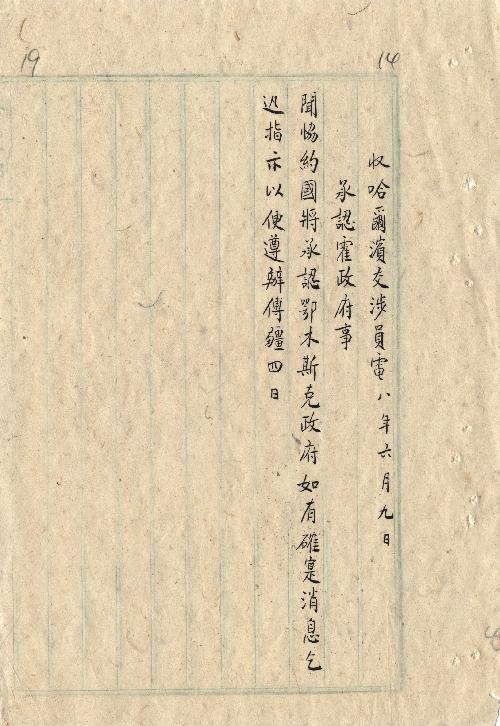 14
收哈爾濱交涉員電 八年六月九日
承認霍政府事
聞協約國將承認鄂木斯克政府如有確寔消息乞
迅指示以便遵辦傅疆四日
19